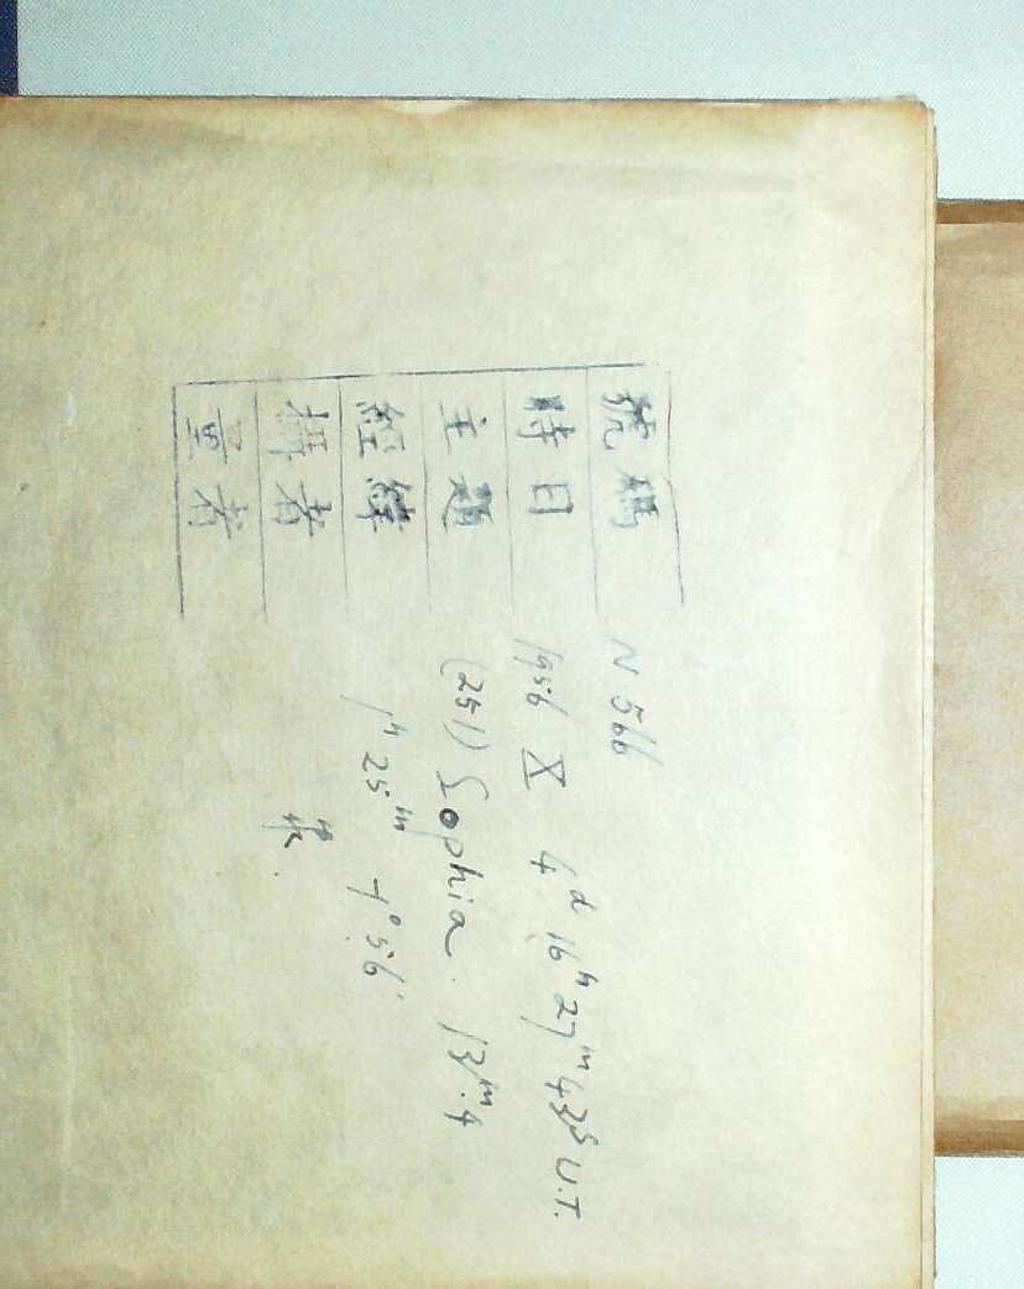 號碼 N 566
時日 1956 X 4ᵈ 16ʰ 27ᵐ 43ˢ U.T.
主題 (251) Sophia. 13ᵐ.4
經緯 1ʰ 25ᵐ +° 56'
攝者
量者